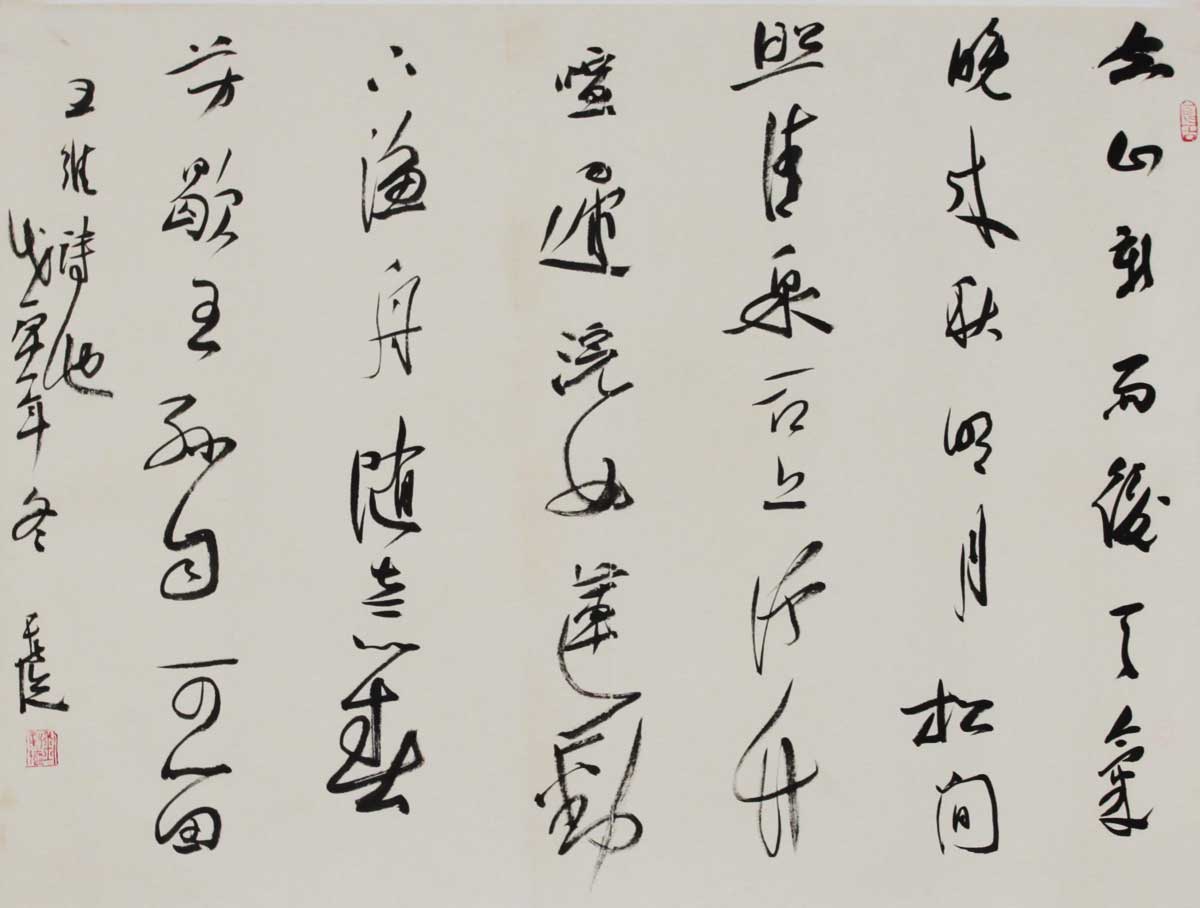 空山新雨後天氣
晚来秋明月松间
照清泉石上流竹
喧歸浣女蓮動
下漁舟随意春
芳歇王孫自可留
王維詩也
戊寅年冬